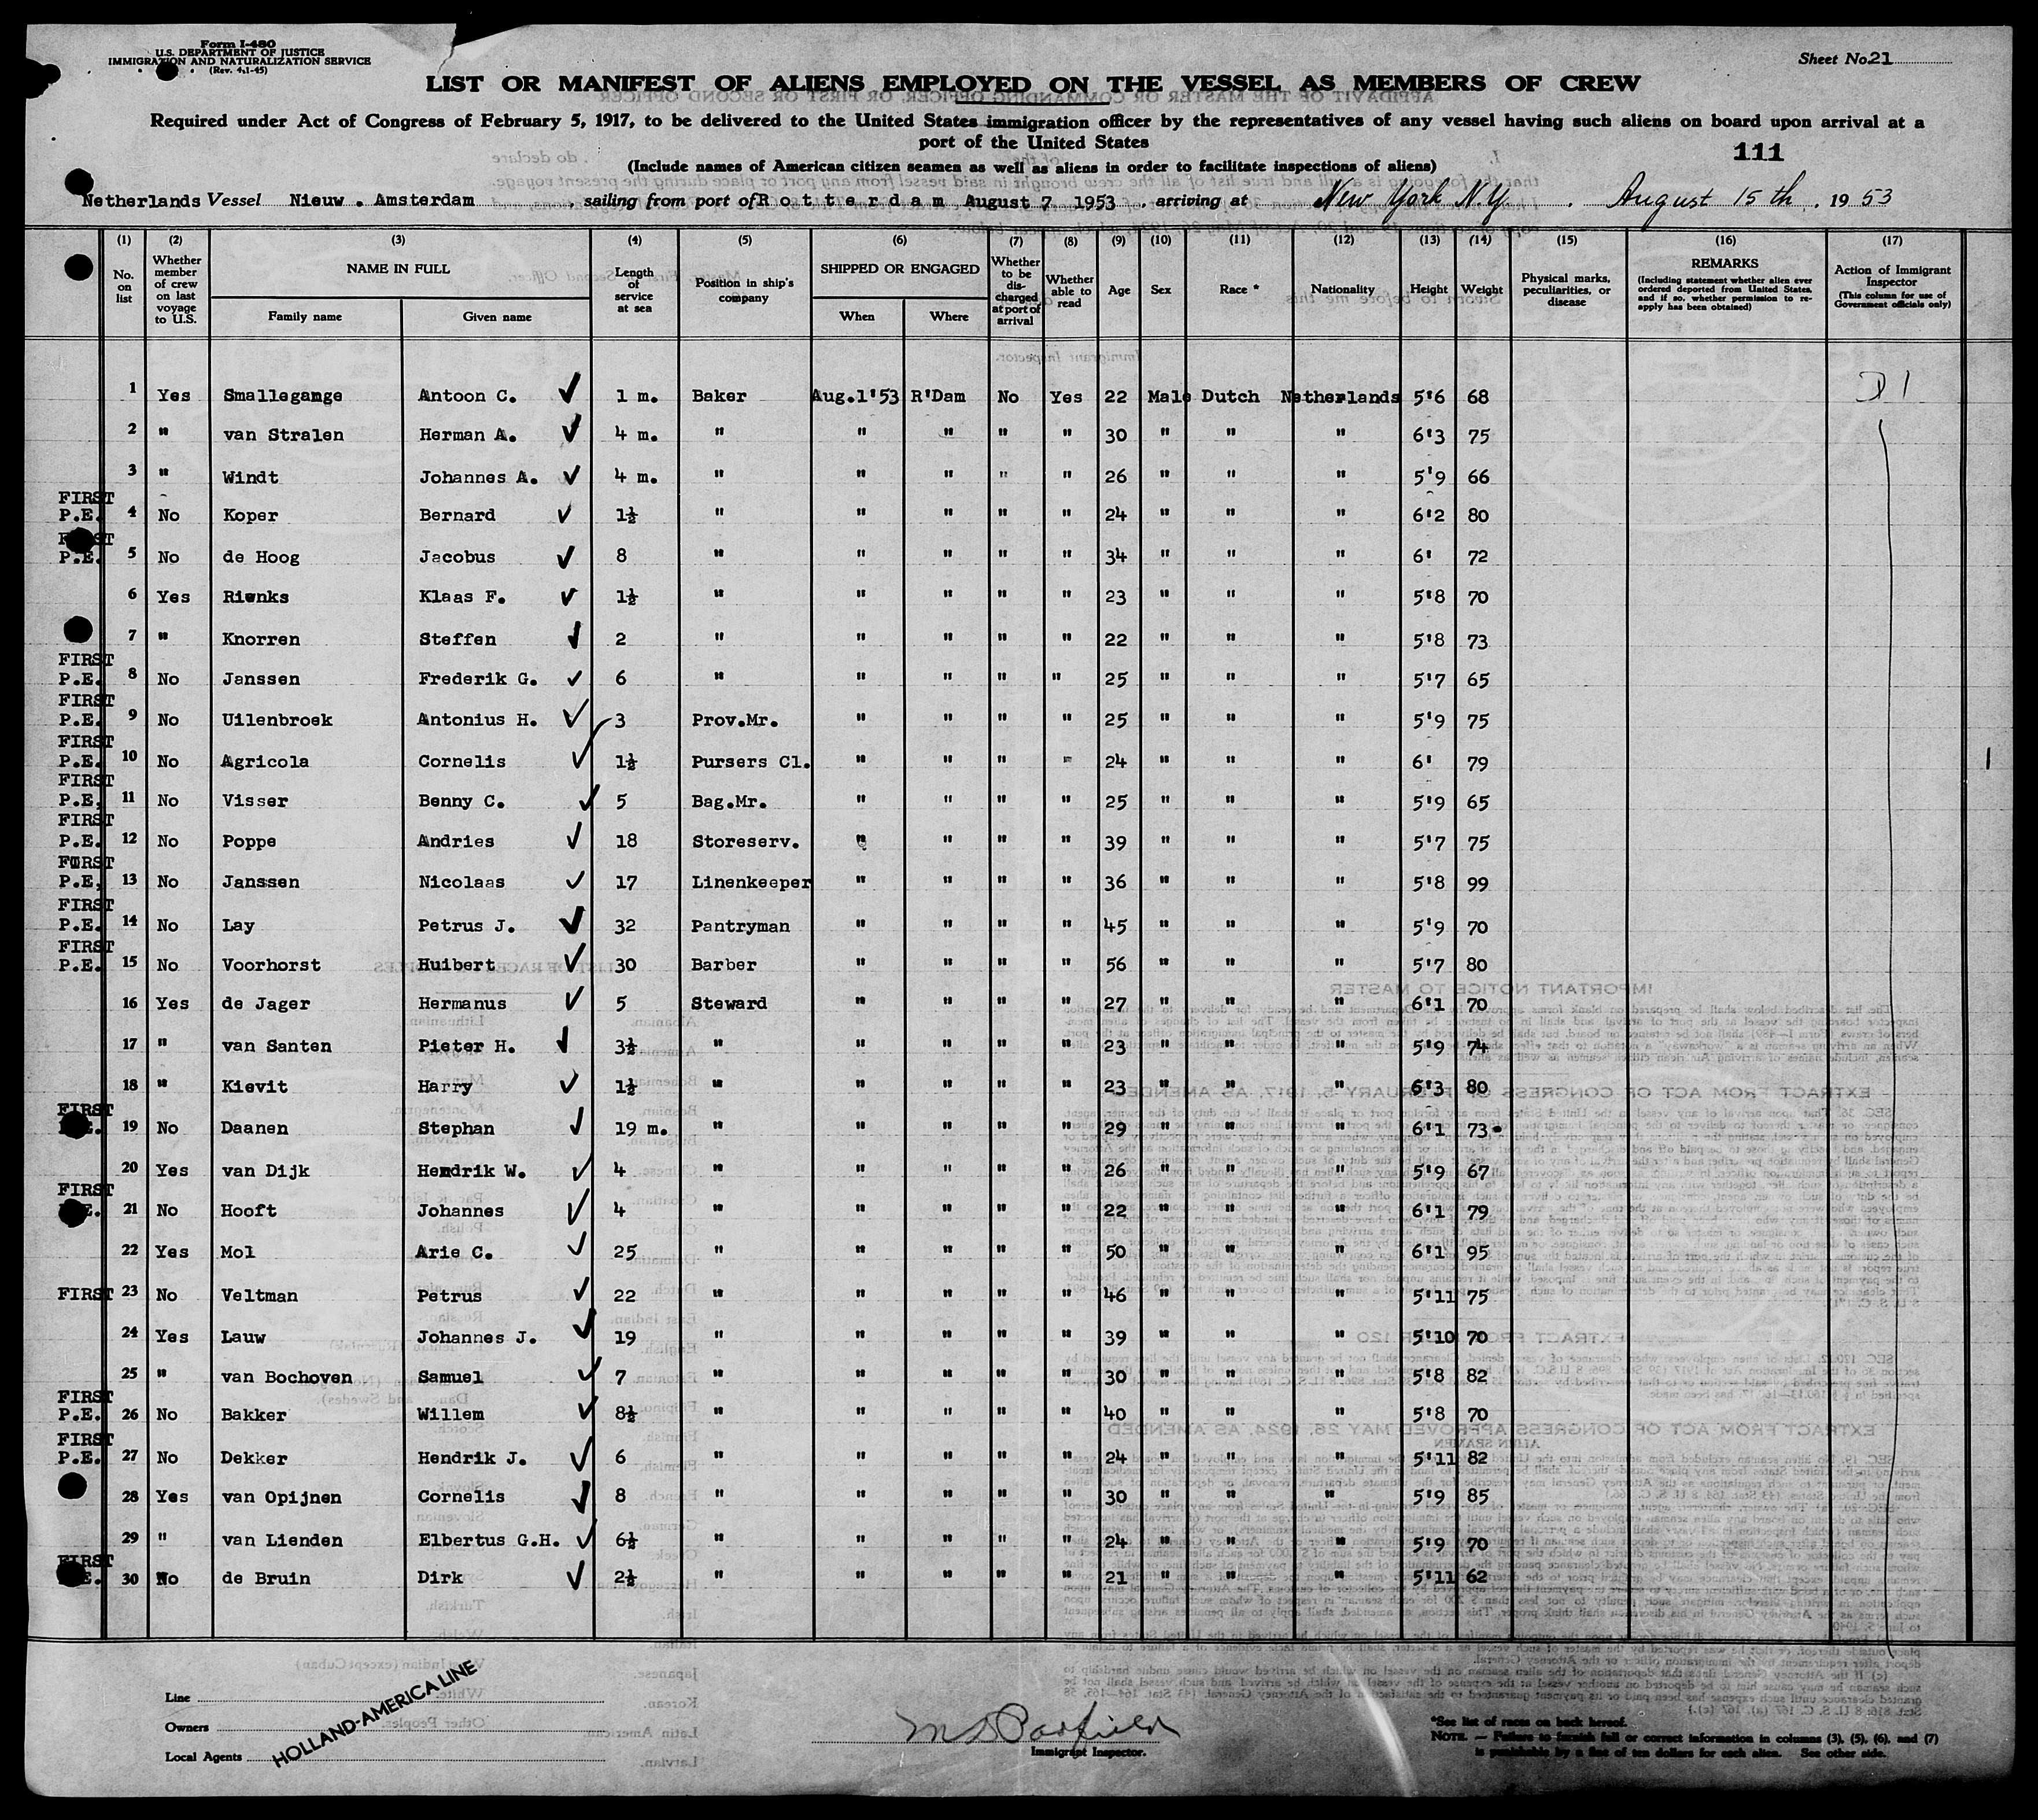 Form I-480
U.S. DEPARTMENT OF JUSTICE
IMMIGRATION AND NATURALIZATION SERVICE
(Rev. 4-1-45)
Sheet No. 21
LIST OR MANIFEST OF ALIENS EMPLOYED ON THE VESSEL AS MEMBERS OF CREW
Required under Act of Congress of February 5, 1917, to be delivered to the United States immigration officer by the representatives of any vessel having such aliens on board upon arrival at a
port of the United States
111
(Include names of American citizen seamen as well as aliens in order to facilitate inspections of aliens)
Netherlands Vessel Nieuw . Amsterdam , sailing from port of Rotterdam August 7 1953 , arriving at New York N.Y. , August 15 th , 19 53
(1) (2) (3) (4) (5) (6) (7) (8) (9) (10) (11) (12) (13) (14) (15) (16) (17)
No. on list Whether member of crew on last voyage to U.S. NAME IN FULL Family name Given name Length of service at sea Position in ship's company SHIPPED OR ENGAGED When Where Whether to be discharged at port of arrival Whether able to read Age Sex Race * Nationality Height Weight Physical marks, peculiarities, or disease REMARKS (Including statement whether alien ever ordered deported from United States, and if so, whether permission to reapply has been obtained) Action of Immigrant Inspector (This column for use of Government officials only)
1 Yes Smallegange Antoon C. 1 m. Baker Aug.1'53 R'Dam No Yes 22 Male Dutch Netherlands 5'6 68 D 1
2 " van Stralen Herman A. 4 m. " " " " " 30 " " " 6'3 75
3 " Windt Johannes A. 4 m. " " " " " 26 " " " 5'9 66
FIRST
P.E. 4 No Koper Bernard 1½ " " " " " 24 " " " 6'2 80
FIRST
P.E. 5 No de Hoog Jacobus 8 " " " " " 34 " " " 6' 72
6 Yes Rienks Klaas F. 1½ " " " " " 23 " " " 5'8 70
7 " Knorren Steffen 2 " " " " " 22 " " " 5'8 73
FIRST
P.E. 8 No Janssen Frederik G. 6 " " " " " 25 " " " 5'7 65
FIRST
P.E. 9 No Uilenbroek Antonius H. 3 Prov.Mr. " " " " 25 " " " 5'9 75
FIRST
P.E. 10 No Agricola Cornelis 1½ Pursers Cl. " " " " 24 " " " 6' 79
FIRST
P.E. 11 No Visser Benny C. 5 Bag.Mr. " " " " 25 " " " 5'9 65
FIRST
P.E. 12 No Poppe Andries 18 Storeserv. " " " " 39 " " " 5'7 75
FIRST
P.E. 13 No Janssen Nicolaas 17 Linenkeeper " " " " 36 " " " 5'8 99
FIRST
P.E. 14 No Lay Petrus J. 32 Pantryman " " " " 45 " " " 5'9 70
FIRST
P.E. 15 No Voorhorst Huibert 30 Barber " " " " 56 " " " 5'7 80
16 Yes de Jager Hermanus 5 Steward " " " " 27 " " " 6'1 70
17 " van Santen Pieter H. 3½ " " " " " 23 " " " 5'9 74
18 " Kievit Harry 1½ " " " " " 23 " " " 6'3 80
FIRST
E. 19 No Daanen Stephan 19 m. " " " " " 29 " " " 6'1 73
20 Yes van Dijk Hendrik W. 4 " " " " " 26 " " " 5'9 67
FIRST
E. 21 No Hooft Johannes 4 " " " " " 22 " " " 6'1 79
22 Yes Mol Arie C. 25 " " " " " 50 " " " 6'1 95
FIRST 23 No Veltman Petrus 22 " " " " " 46 " " " 5'11 75
24 Yes Lauw Johannes J. 19 " " " " " 39 " " " 5'10 70
25 " van Bochoven Samuel 7 " " " " " 30 " " " 5'8 82
FIRST
P.E. 26 No Bakker Willem 8½ " " " " " 40 " " " 5'8 70
FIRST
P.E. 27 No Dekker Hendrik J. 6 " " " " " 24 " " " 5'11 82
28 Yes van Opijnen Cornelis 8 " " " " " 30 " " " 5'9 85
29 " van Lienden Elbertus G.H. 6½ " " " " " 24 " " " 5'9 70
FIRST
E. 30 No de Bruin Dirk 2½ " " " " " 21 " " " 5'11 62
Line
Owners
Local Agents
HOLLAND-AMERICA LINE
Immigrant Inspector.
*See list of races on back hereof.
NOTE. — Failure to furnish full or correct information in columns (3), (5), (6), and (7)
is punishable by a fine of ten dollars for each alien. See other side.